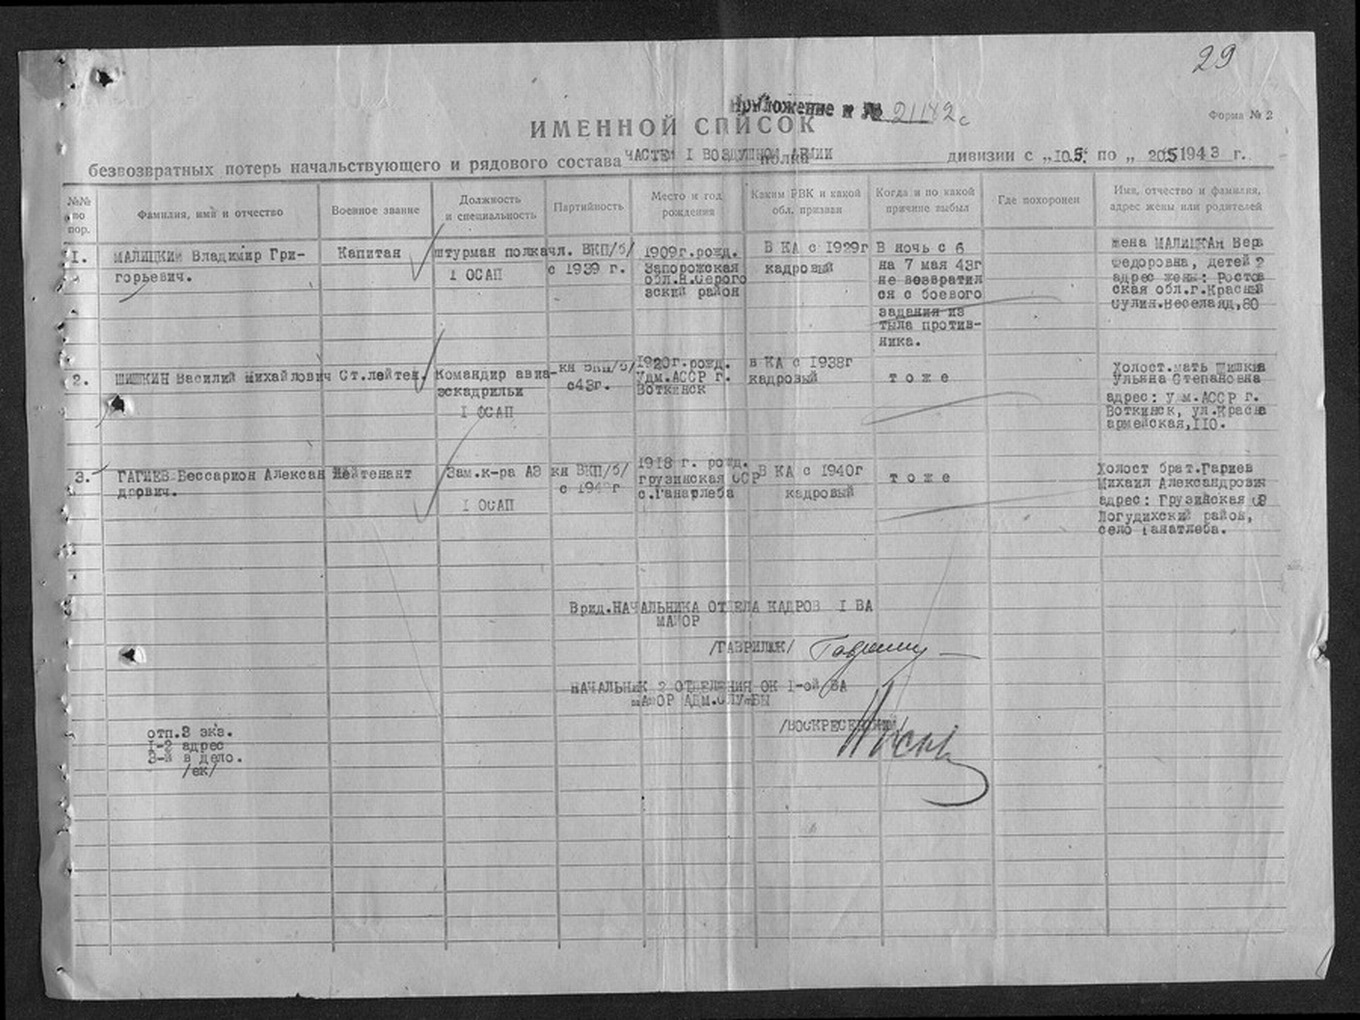 29
Приложение к № 21142с
Форма № 2
ИМЕННОЙ СПИСОК
безвозвратных потерь начальствующего и рядового состава ЧАСТЕЙ I ВОЗДУШНОЙ АРМИИ полка дивизии с „10.5. по „ 20.5 1943 г.
№№ по пор.
Фамилия, имя и отчество
Военное звание
Должность и специальность
Партийность
Место и год рождения
Каким РВК и какой обл. призван
Когда и по какой причине выбыл
Где похоронен
Имя, отчество и фамилия, адрес жены или родителей
1.
МАЛИЦКИЙ Владимир Гри-
горьевич.
Капитан
штурман полка
I ОСАП
чл. ВКП/б/
с 1939 г.
1909г.рожд.
Запорожская
обл.Н.Серого
зский район
В КА с 1929г
кадровый
В ночь с 6
на 7 мая 43г
не возвратил
ся с боевого
задания из
тыла против-
ника.
жена МАЛИЦКАЯ Вера
Федоровна, детей 2
адрес жены: Ростов
ская обл.г.Красный
Сулин. 60
2.
ШИШКИН Василий Михайлович
Ст.лейтен.
Командир авиа-
эскадрильи
I ОСАП
кн ВКП/б/
с43г.
1920г.рожд.
Удм.АССР г.
Воткинск
в КА с 1938г
кадровый
т о ж е
Холост.мать Шишкина
Ульяна Степановна
адрес: Удм.АССР г.
Воткинск, ул.Красно
армейская,110.
3.
ГАГИЕВ Бессарион Алексан
дрович.
Лейтенант
Зам.к-ра АЭ
I ОСАП
кн ВКП/б/
1918 г. рожд.
грузинская ССР
В КА с 1940г
кадровый
т о ж е
Холост брат.Гагиев
Михаил Александрович
адрес: Грузинская СР
район,
село
Врид.НАЧАЛЬНИКА ОТДЕЛА КАДРОВ I ВА
МАЙОР
/ГАВРИЛЮК/
НАЧАЛЬНИК 2 ОТДЕЛЕНИЯ ОК 1-ой ВА
МАЙОР АДМ.СЛУЖБЫ
/ВОСКРЕСЕНСКИЙ/
отп.3 экз.
1-2 адрес
3-й в дело.
/ек/